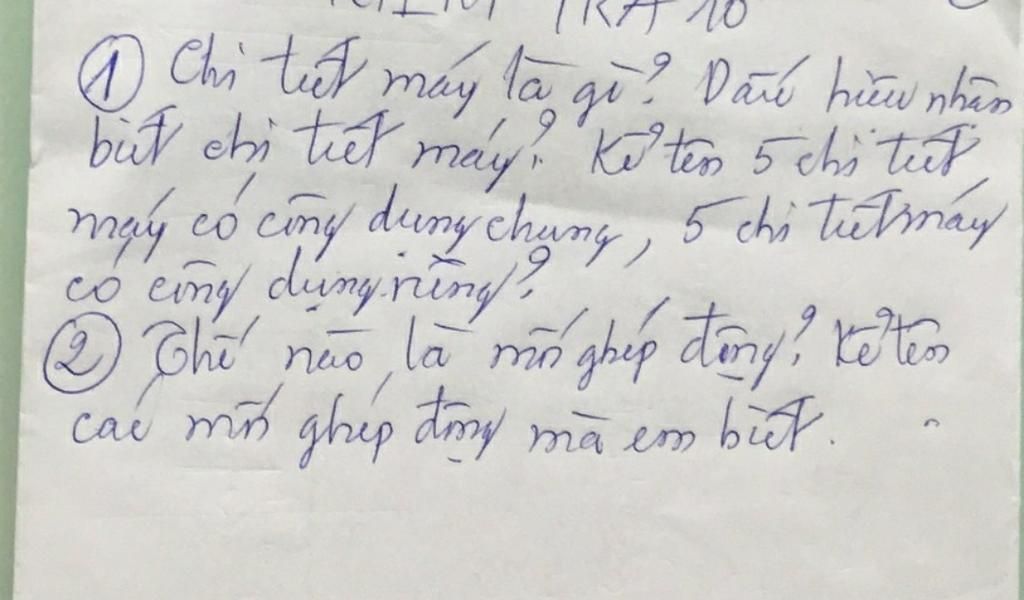 KIỂM TRA 10
① Chi tiết máy là gì? Dấu hiệu nhận
biết chi tiết máy? Kể tên 5 chi tiết
máy có công dụng chung, 5 chi tiết máy
có công dụng riêng?
② Thế nào là mối ghép động? Kể tên
các mối ghép động mà em biết.